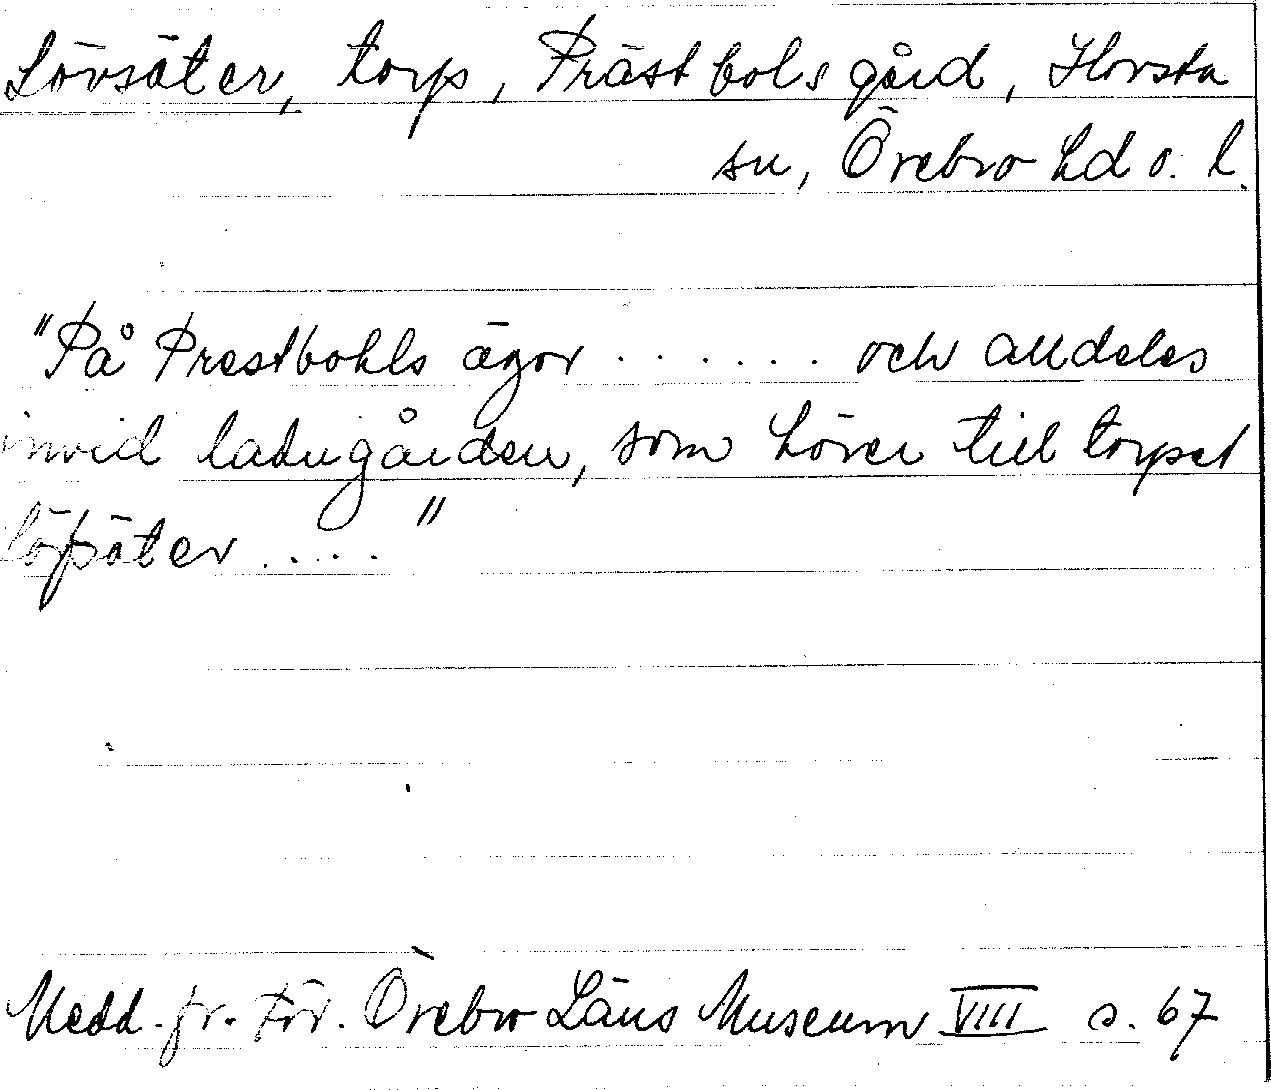 Lövsäter, torp, Prästbols gård, Hovsta
sn, Örebro hd o. l.
"På Prestbohls ägor ...... och alldeles
invid ladugården, som hörer till torpet
Löfsäter ...."
Medd. fr. För. Örebro Läns Museum VIII s. 67